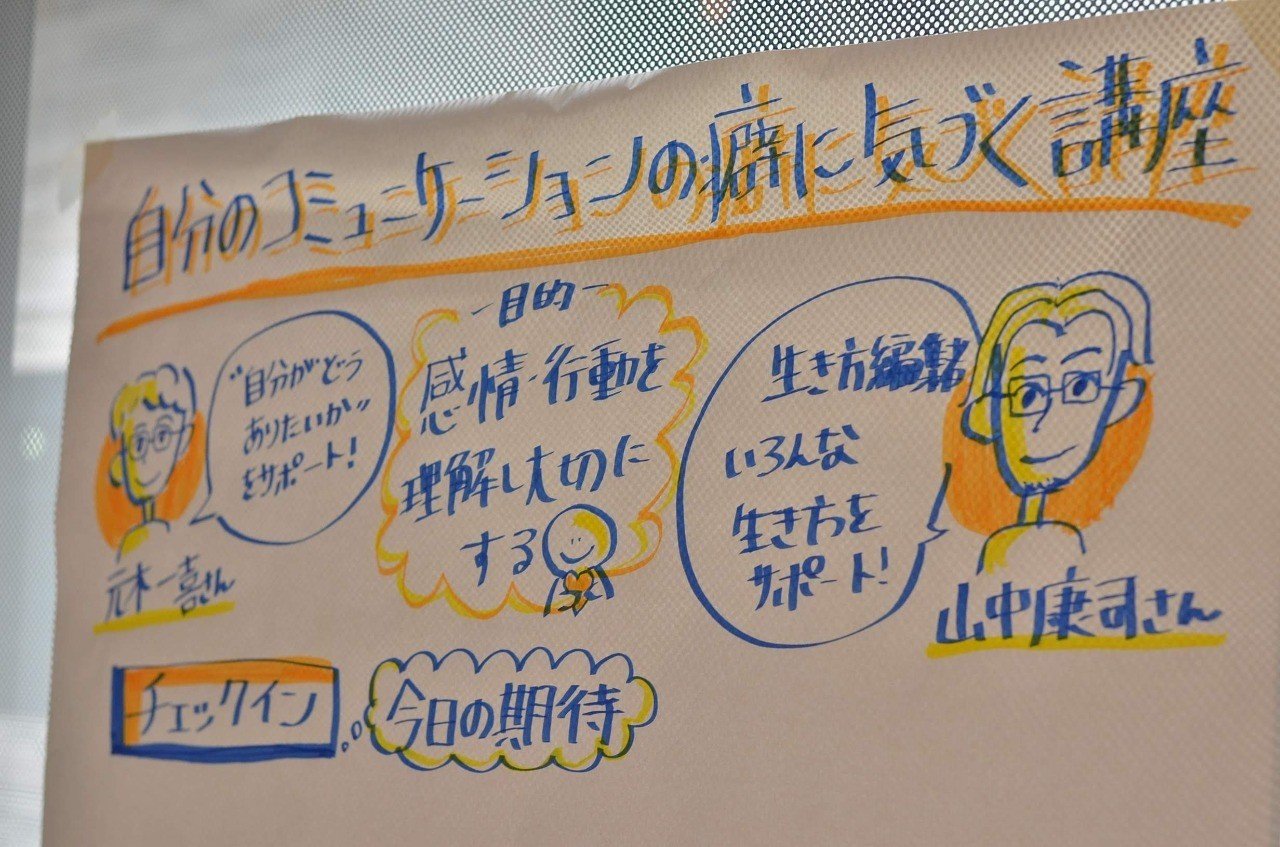 自分のコミュニケーションの癖に気づく講座
"自分がどう
ありたいか"
をサポート!
元木一喜さん
-目的-
感情・行動を
理解し大切に
する
生き方編集者
いろんな
生き方を
サポート!
山中康司さん
チェックイン
今日の期待